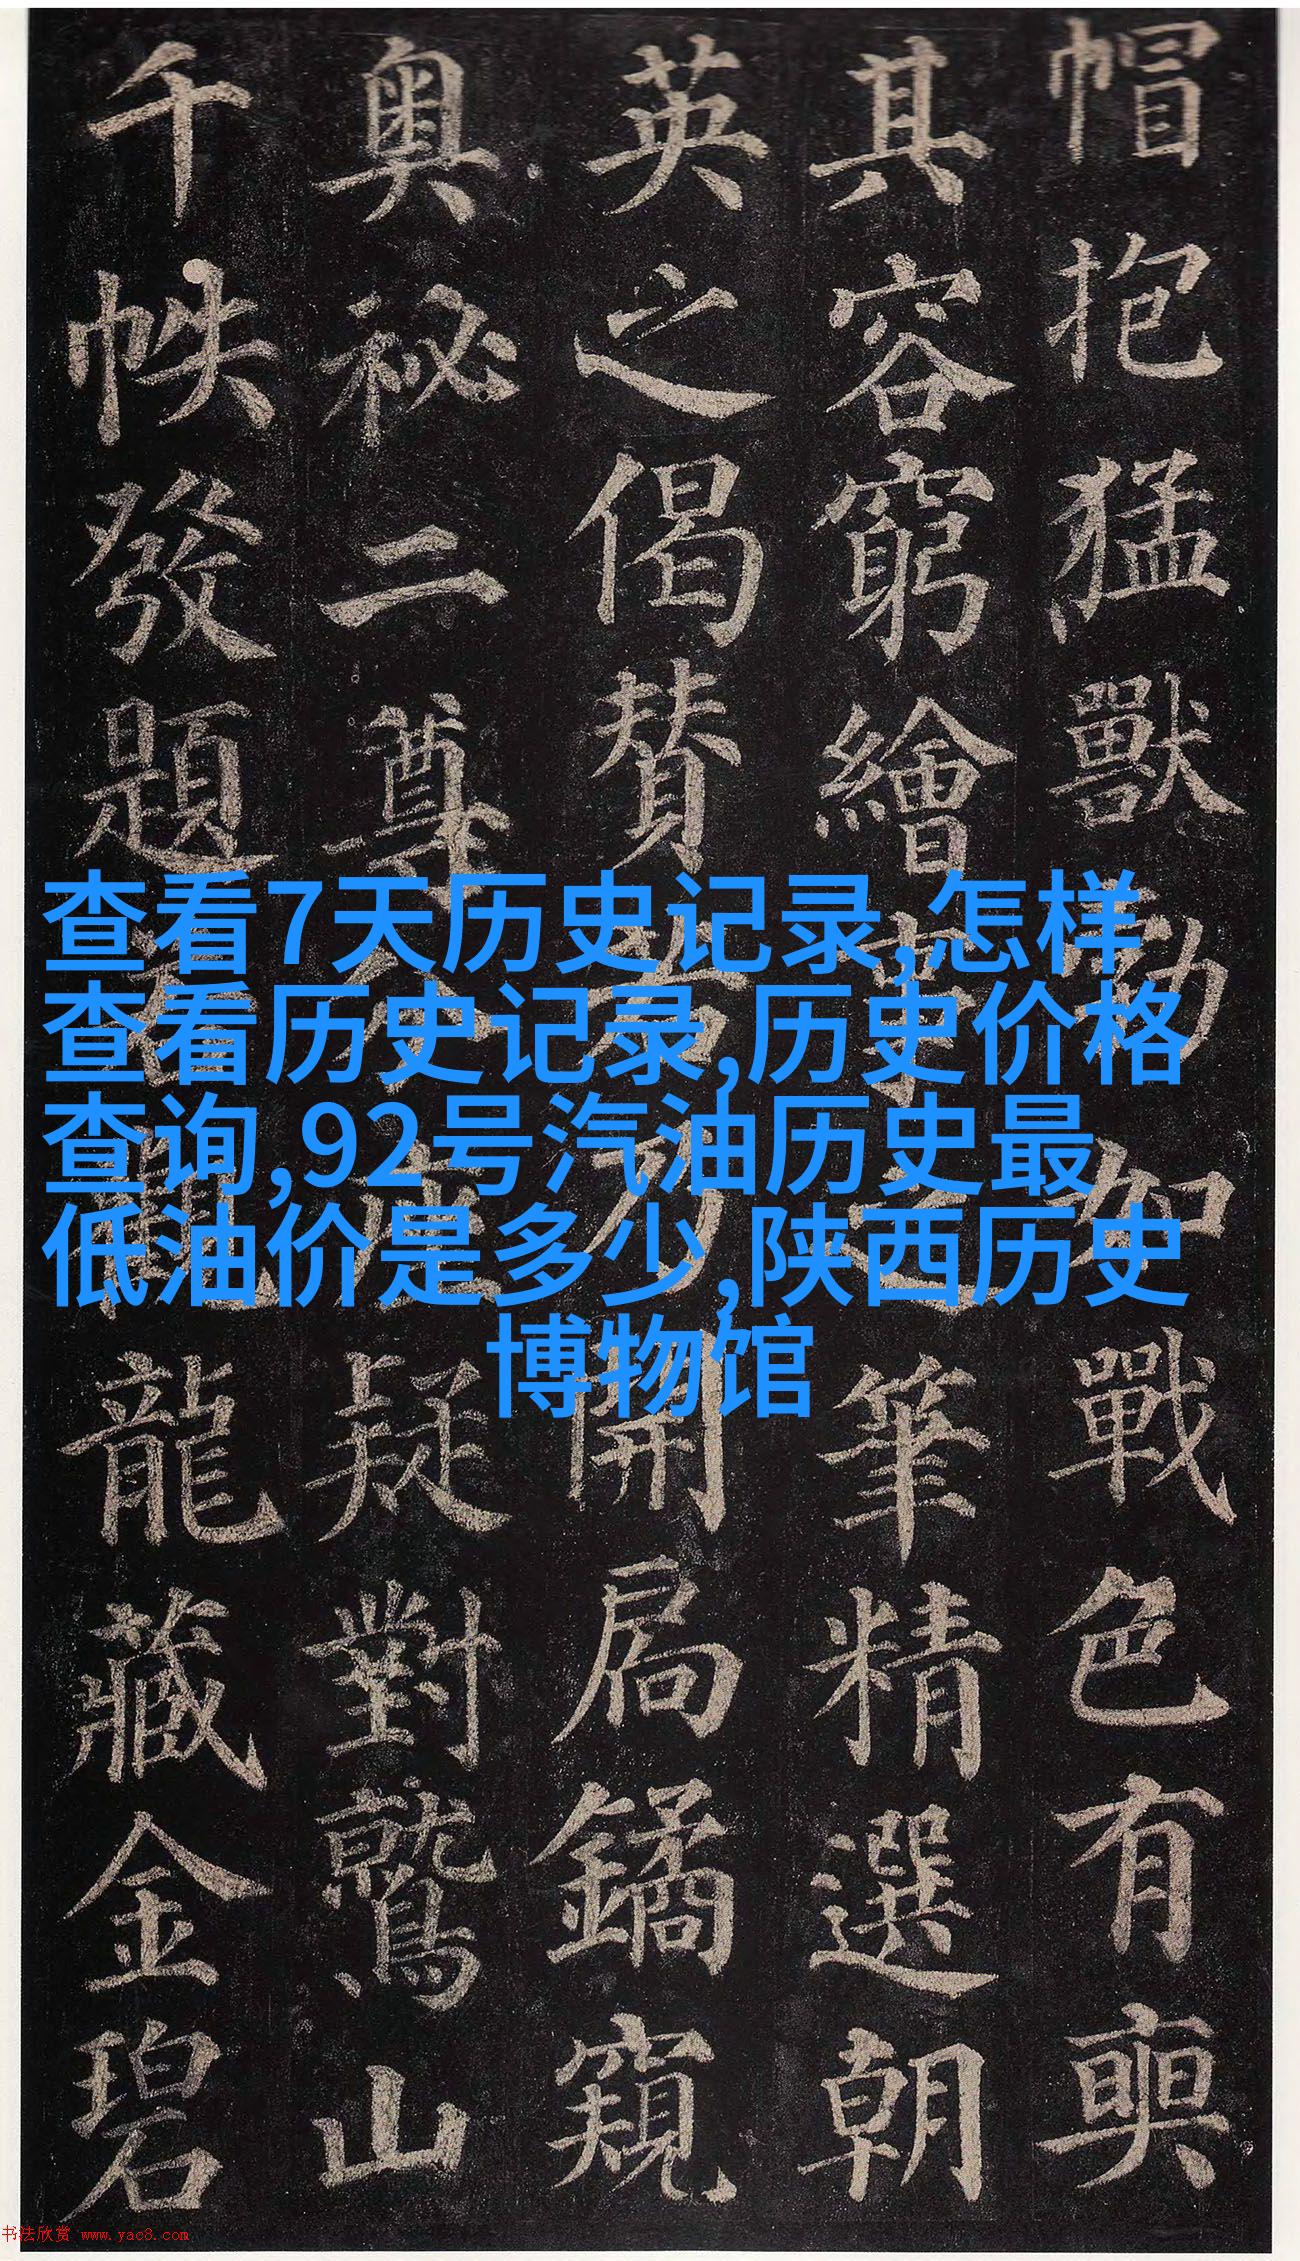 帽抱猛獸勃如戰色有奭
其容窮繪事之筆精選朝
英之偈贊若乃開扃鐍窺
奥祕二尊分座疑對鷲山
千帙發題若觀龍藏金碧
查看7天历史记录,怎样
查看历史记录,历史价格
查询,92号汽油历史最
低油价是多少,陕西历史
博物馆
书法欣赏 www.yac8.com